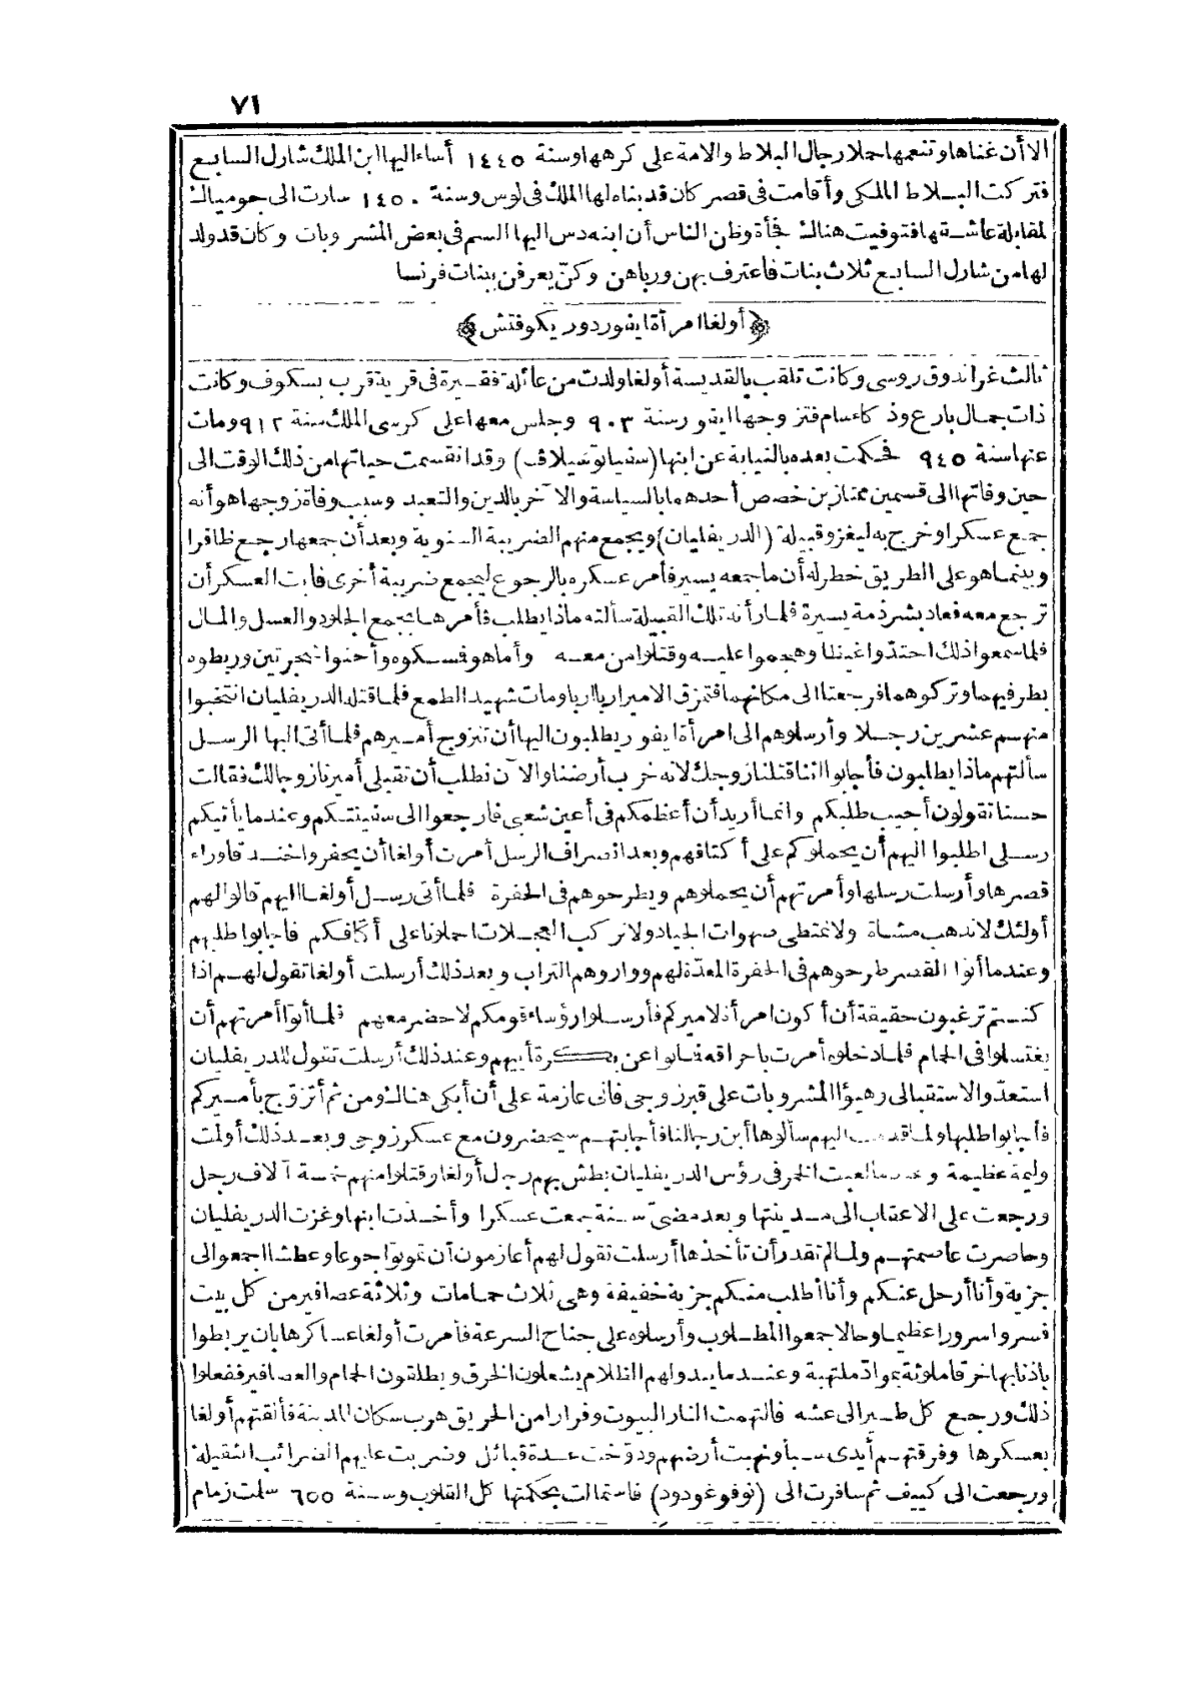 ٧١
الا أن غناها وتنعمها حملا رجال البلاط والامة على كرهها وسنة ١٤٤٥ أساء اليها ابن الملك شارل السابع
فتركت البلاط الملكى وأقامت فى قصر كان قد بناه لها الملك فى لوس وسنة ١٤٥٠ سارت الى جومياك
لمقابلة عاشقها فتوفيت هناك فجأة وظن الناس أن ابنه دس اليها السم فى بعض المشروبات وكان قد ولد
لها من شارل السابع ثلاث بنات فاعترف بهن ورباهن وكنّ يعرفن ببنات فرنسا
﴿أولغا امرأة ايفور دوريكوفتش﴾
ثالث غراندوق روسى وكانت تلقب بالقديسة أولغا ولدت من عائلة فقيرة فى قرية قرب بسكوف وكانت
ذات جمال بارع وذكاء سام فتزوجها ايفور سنة ٩٠٣ وجلس معها على كرسى الملك سنة ٩١٢ ومات
عنها سنة ٩٤٥ فحكمت بعده بالنيابة عن ابنها (سفياتوسيلاف) وقد انقسمت حياتها من ذلك الوقت الى
حين وفاتها الى قسمين ممتازين خصص أحدهما بالسياسة والآخر بالدين والتعبد وسبب وفاة زوجها هو أنه
جمع عسكرا وخرج به ليغزو قبيلة (الدريفليان) ويجمع منهم الضريبة السنوية وبعد أن جمعها رجع ظافرا
وبينما هو على الطريق خطر له أن ما جمعه يسير فأمر عسكره بالرجوع ليجمع ضريبة أخرى فأبت العسكر أن
ترجع معه فعاد بشرذمة يسيرة فلما رأته تلك القبيلة سألته ماذا يطلب فأمرها بجمع الجلود والعسل والمال
فلما سمعوا ذلك احتدّوا غيظا وهجموا عليه وقتلوا من معه وأما هو فمسكوه وأحنوا شجرتين وربطوه
بطرفيهما وتركوهما فرجعتا الى مكانهما فتمزق الامير اربا اربا ومات شهيد الطمع فلما قتله الدريفليان انتخبوا
منهم عشرين رجلا وأرسلوهم الى امرأة ايفور يطلبون اليها أن تتزوج أميرهم فلما أتى اليها الرسل
سألتهم ماذا يطلبون فأجابوا اننا قتلنا زوجك لانه خرب أرضنا والآن نطلب أن تقبلى أميرنا زوجا لك فقالت
حسنا تقولون أجيب طلبكم وانما أريد أن أعظمكم فى أعين شعبى فارجعوا الى سفينتكم وعندما يأتيكم
رسلى اطلبوا اليهم أن يحملوكم على أكتافهم وبعد انصراف الرسل أمرت أولغا أن يحفروا خندقا وراء
قصرها وأرسلت رسلها وأمرتهم أن يحملوهم ويطرحوهم فى الحفرة فلما أتى رسل أولغا اليهم قالوا لهم
أولئك لا نذهب مشاة ولا نمتطى صهوات الجياد ولا نركب العجلات احملونا على أكتافكم فأجابوا طلبهم
وعندما أتوا القصر طرحوهم فى الحفرة المعدّة لهم وواروهم التراب وبعد ذلك أرسلت أولغا تقول لهم اذا
كنتم ترغبون حقيقة أن أكون امرأة لاميركم فأرسلوا رؤساء قومكم لاحضر معهم فلما أتوا أمرتهم أن
يغتسلوا فى الحمام فلما دخلوه أمرت باحراقه فماتوا عن بكرة أبيهم وعند ذلك أرسلت تقول للدريفليان
استعدّوا لاستقبالى وهيؤا المشروبات على قبر زوجى فانى عازمة على أن أبكى هناك ومن ثم أتزوّج بأميركم
فأجابوا طلبها ولما قدمت اليهم سألوها أين رجالنا فأجابتهم سيحضرون مع عسكر زوجى وبعد ذلك أولمت
وليمة عظيمة وعندما لعبت الخمر فى رؤس الدريفليان بطش بهم رجل أولغا وقتلوا منهم خمسة آلاف رجل
ورجعت على الاعقاب الى مدينتها وبعد مضىّ سنة جمعت عسكرا وأخذت ابنها وغزت الدريفليان
وحاصرت عاصمتهم ولما لم تقدر أن تأخذها أرسلت تقول لهم أعازمون أن تموتوا جوعا وعطشا اجمعوا لى
جزية وأنا أرحل عنكم وأنا أطلب منكم جزية خفيفة وهى ثلاث حمامات وثلاثة عصافير من كل بيت
فسروا سرورا عظيما وحالا جمعوا المطلوب وأرسلوه على جناح السرعة فأمرت أولغا عساكرها بان يربطوا
باذنابها خرقا ملوثة بموادّ ملتهبة وعندما يبدو لهم الظلام يشعلون الخرق ويطلقون الحمام والعصافير ففعلوا
ذلك ورجع كل طير الى عشه فالتهمت النار البيوت وفرارا من الحريق هرب سكان المدينة فألقتهم أولغا
بعسكرها وفرقتهم أيدى سبا ونهبت أرضهم ودوّخت عدة قبائل وضربت عليهم الضرائب الثقيلة
ورجعت الى كييف ثم سافرت الى (نوفوغودود) فاستمالت بحكمتها كل القلوب وسنة ٦٥٥ سلمت زمام